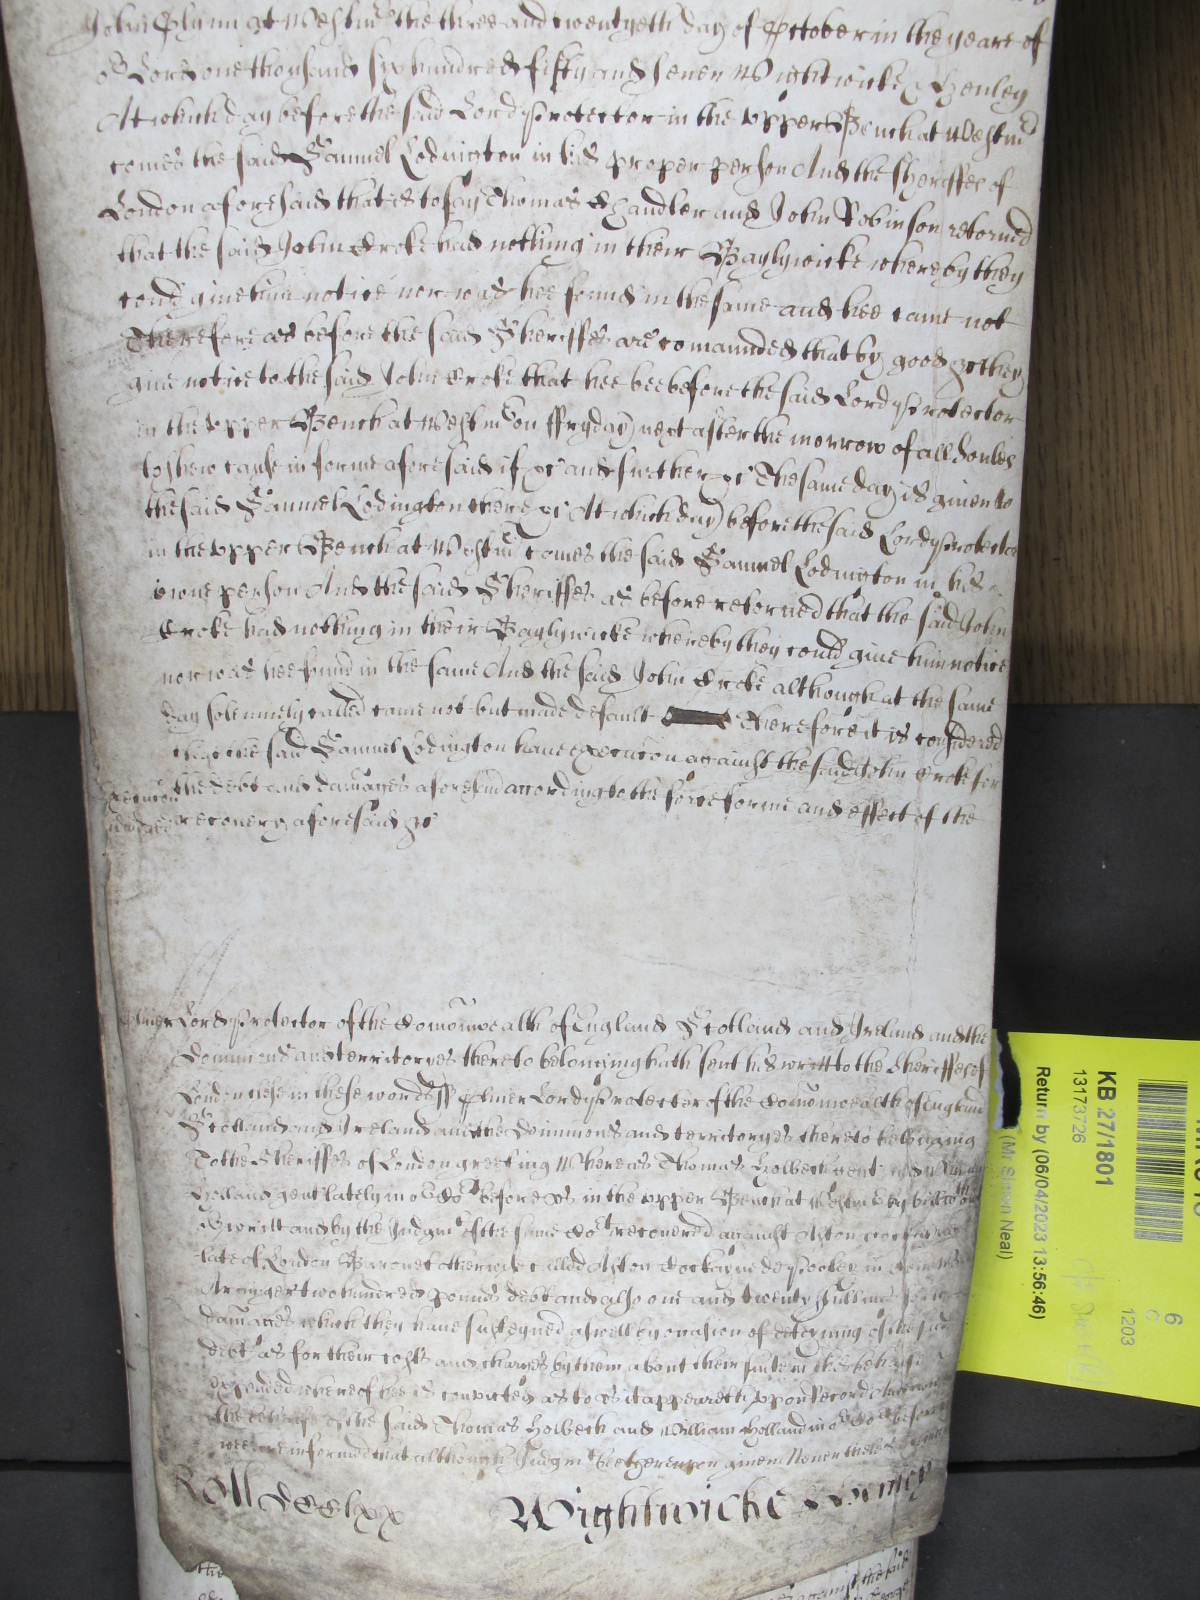 John Glynn at Westm the three and twentyeth day of October in the yeare of
or Lord one thousand six hundred fifty and seven Wightwicke & Henley
At which day before the said Lord Protector in the upper Bench at Westm
comes the said Samuel Lodington in his proper person And the Sheriffes of
London aforesaid that is to say Thomas Chandler and John Robinson retorned
that the said John Croke had nothing in their Baylywicke whereby they
could give him notice nor was hee found in the same and hee came not
Therefore as before the said Sheriffes are comaunded that by good &c they
give notice to the said John Croke that hee bee before the said Lord Protector
in the upper Bench at Westm on ffryday next after the morrow of all Soules
to shew cause in forme aforesaid if &c and further &c The same day is given to
the said Samuel Lodington there &c At which day before the said Lord Protector
in the upper Bench at Westm comes the said Samuel Lodington in his
owne person And the said Sheriffes as before retorned that the said John
Croke had nothing in their Baylywicke whereby they could give him notice
nor was hee found in the same And the said John Croke although at the same
day solemnely called came not but made default Therefore it is considered
that the said Samuel Lodington have execucon against the said John Croke for
the debt and damages aforesaid according to the force forme and effect of the
recovery aforesaid &c
Oliver Lord Protector of the Comonwealth of England Scotland and Ireland and the
Dominions and territoryes thereto belonging hath sent his writt to the Sheriffes of
London close in these words ss Oliver Lord Protector of the Comonwealth of England
Scotland and Ireland and the Dominions and territoryes thereto belonging
To the Sheriffes of London greeting Whereas Thomas Holbech gent and William
Holland gent lately in or Cot before us in the upper Bench at Westm by bill without
or writt and by the Judgmt of the same Cot recovered against Aston
late of London Baronet otherwise called Aston Cockayne de Pooley in
Armiger two hundred pounds debt and also one and twenty shillings for
damages which they have susteyned aswell by occasion of deteyning of the said
debt as for their costs and charges by them about their suite in this behalfe
expended whereof hee is convicted as to us it appeareth upon Record
the said Thomas Holbech and William Holland in or Cot before
wee are informed that although Judgmt bee thereupon given Neverthelesse
Roll CCClxx Wightwicke & Henley
KB 27/1801
13173726
Return by (06/04/2023 13:56:46)
(Mr Simon Neal)
6
C
1203